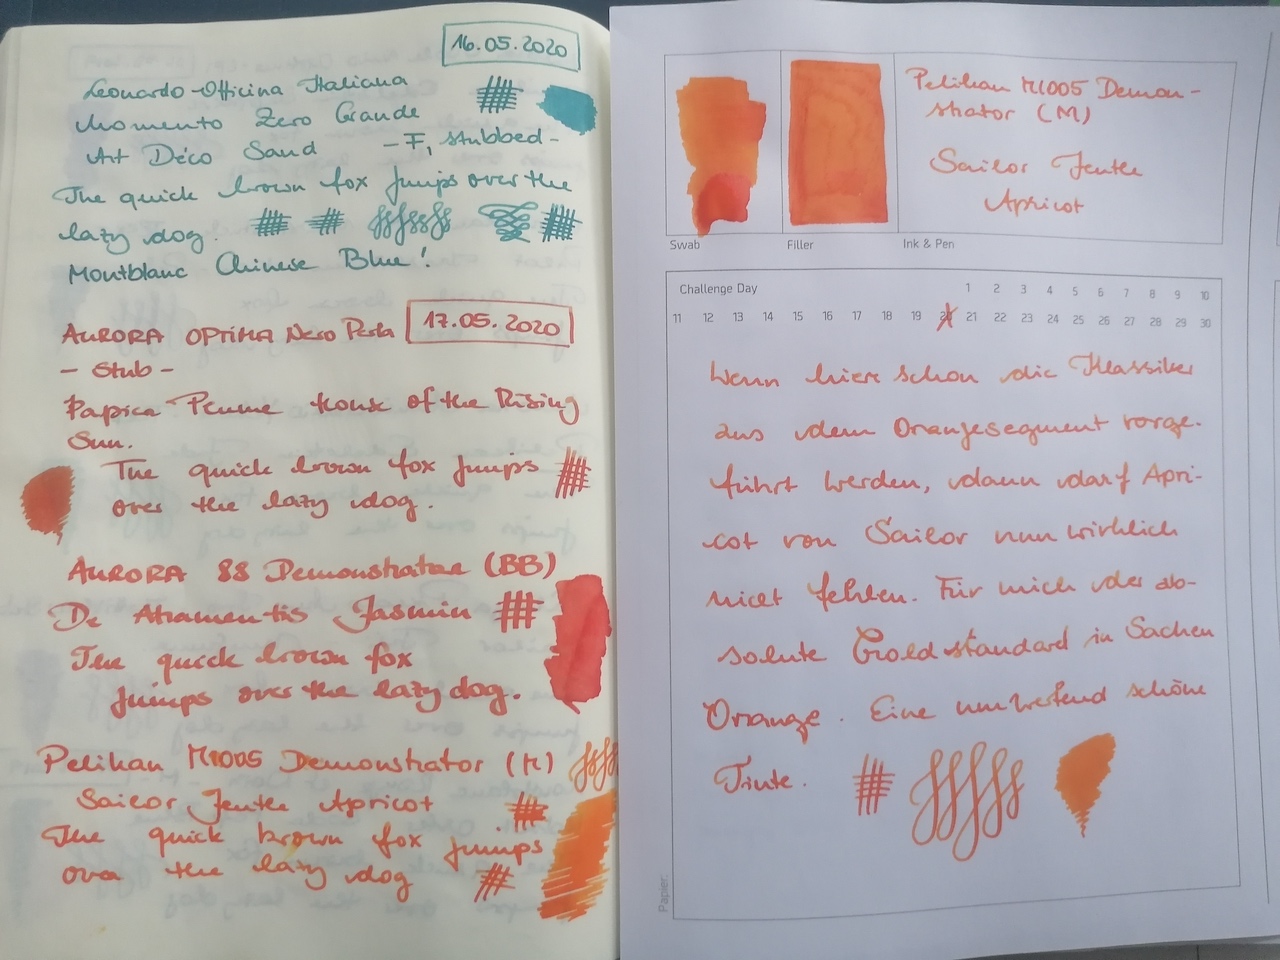 16.05.2020
Leonardo Officina Italiana
Momento Zero Grande
Art Déco Sand - F, stubbed -
The quick brown fox jumps over the
lazy dog.
Montblanc Chinese Blue!
AURORA OPTIMA Nero Perla 17.05.2020
- Stub -
Papier Plume House of the Rising
Sun.
The quick brown fox jumps
over the lazy dog.
AURORA 88 Demonstrator (BB)
De Atramentis Jasmin
The quick brown fox
jumps over the lazy dog.
Pelikan M1005 Demonstrator (M)
Sailor Jentle Apricot
The quick brown fox jumps
over the lazy dog
Pelikan M1005 Demon-
strator (M)
Sailor Jentle
Apricot
Swab Filler Ink & Pen
Challenge Day 1 2 3 4 5 6 7 8 9 10
11 12 13 14 15 16 17 18 19 20 21 22 23 24 25 26 27 28 29 30
Wenn hier schon die Klassiker
aus dem Orangesegment vorge-
führt werden, dann darf Apri-
cot von Sailor nun wirklich
nicht fehlen. Für mich der ab-
solute Goldstandard in Sachen
Orange. Eine umwerfend schöne
Tinte.
Papier: